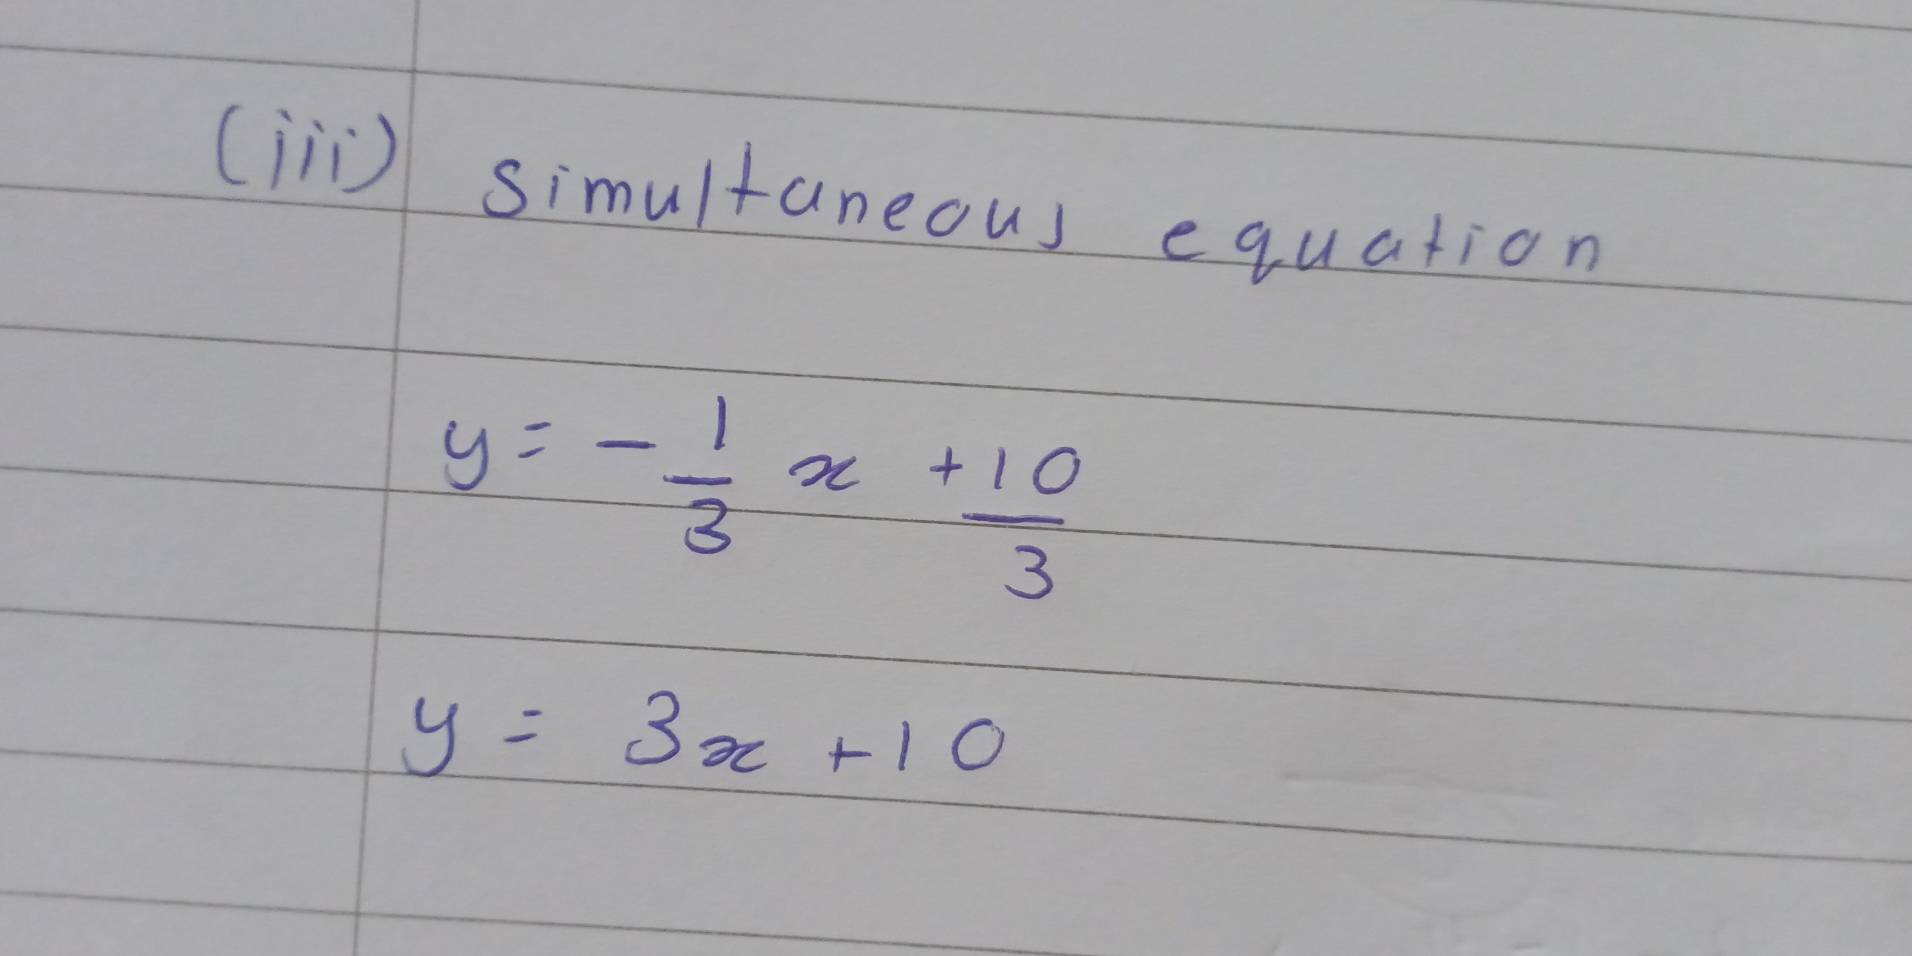 (iii) simultaneous equation
y = - 1/3 x + 10/3
y = 3x + 10